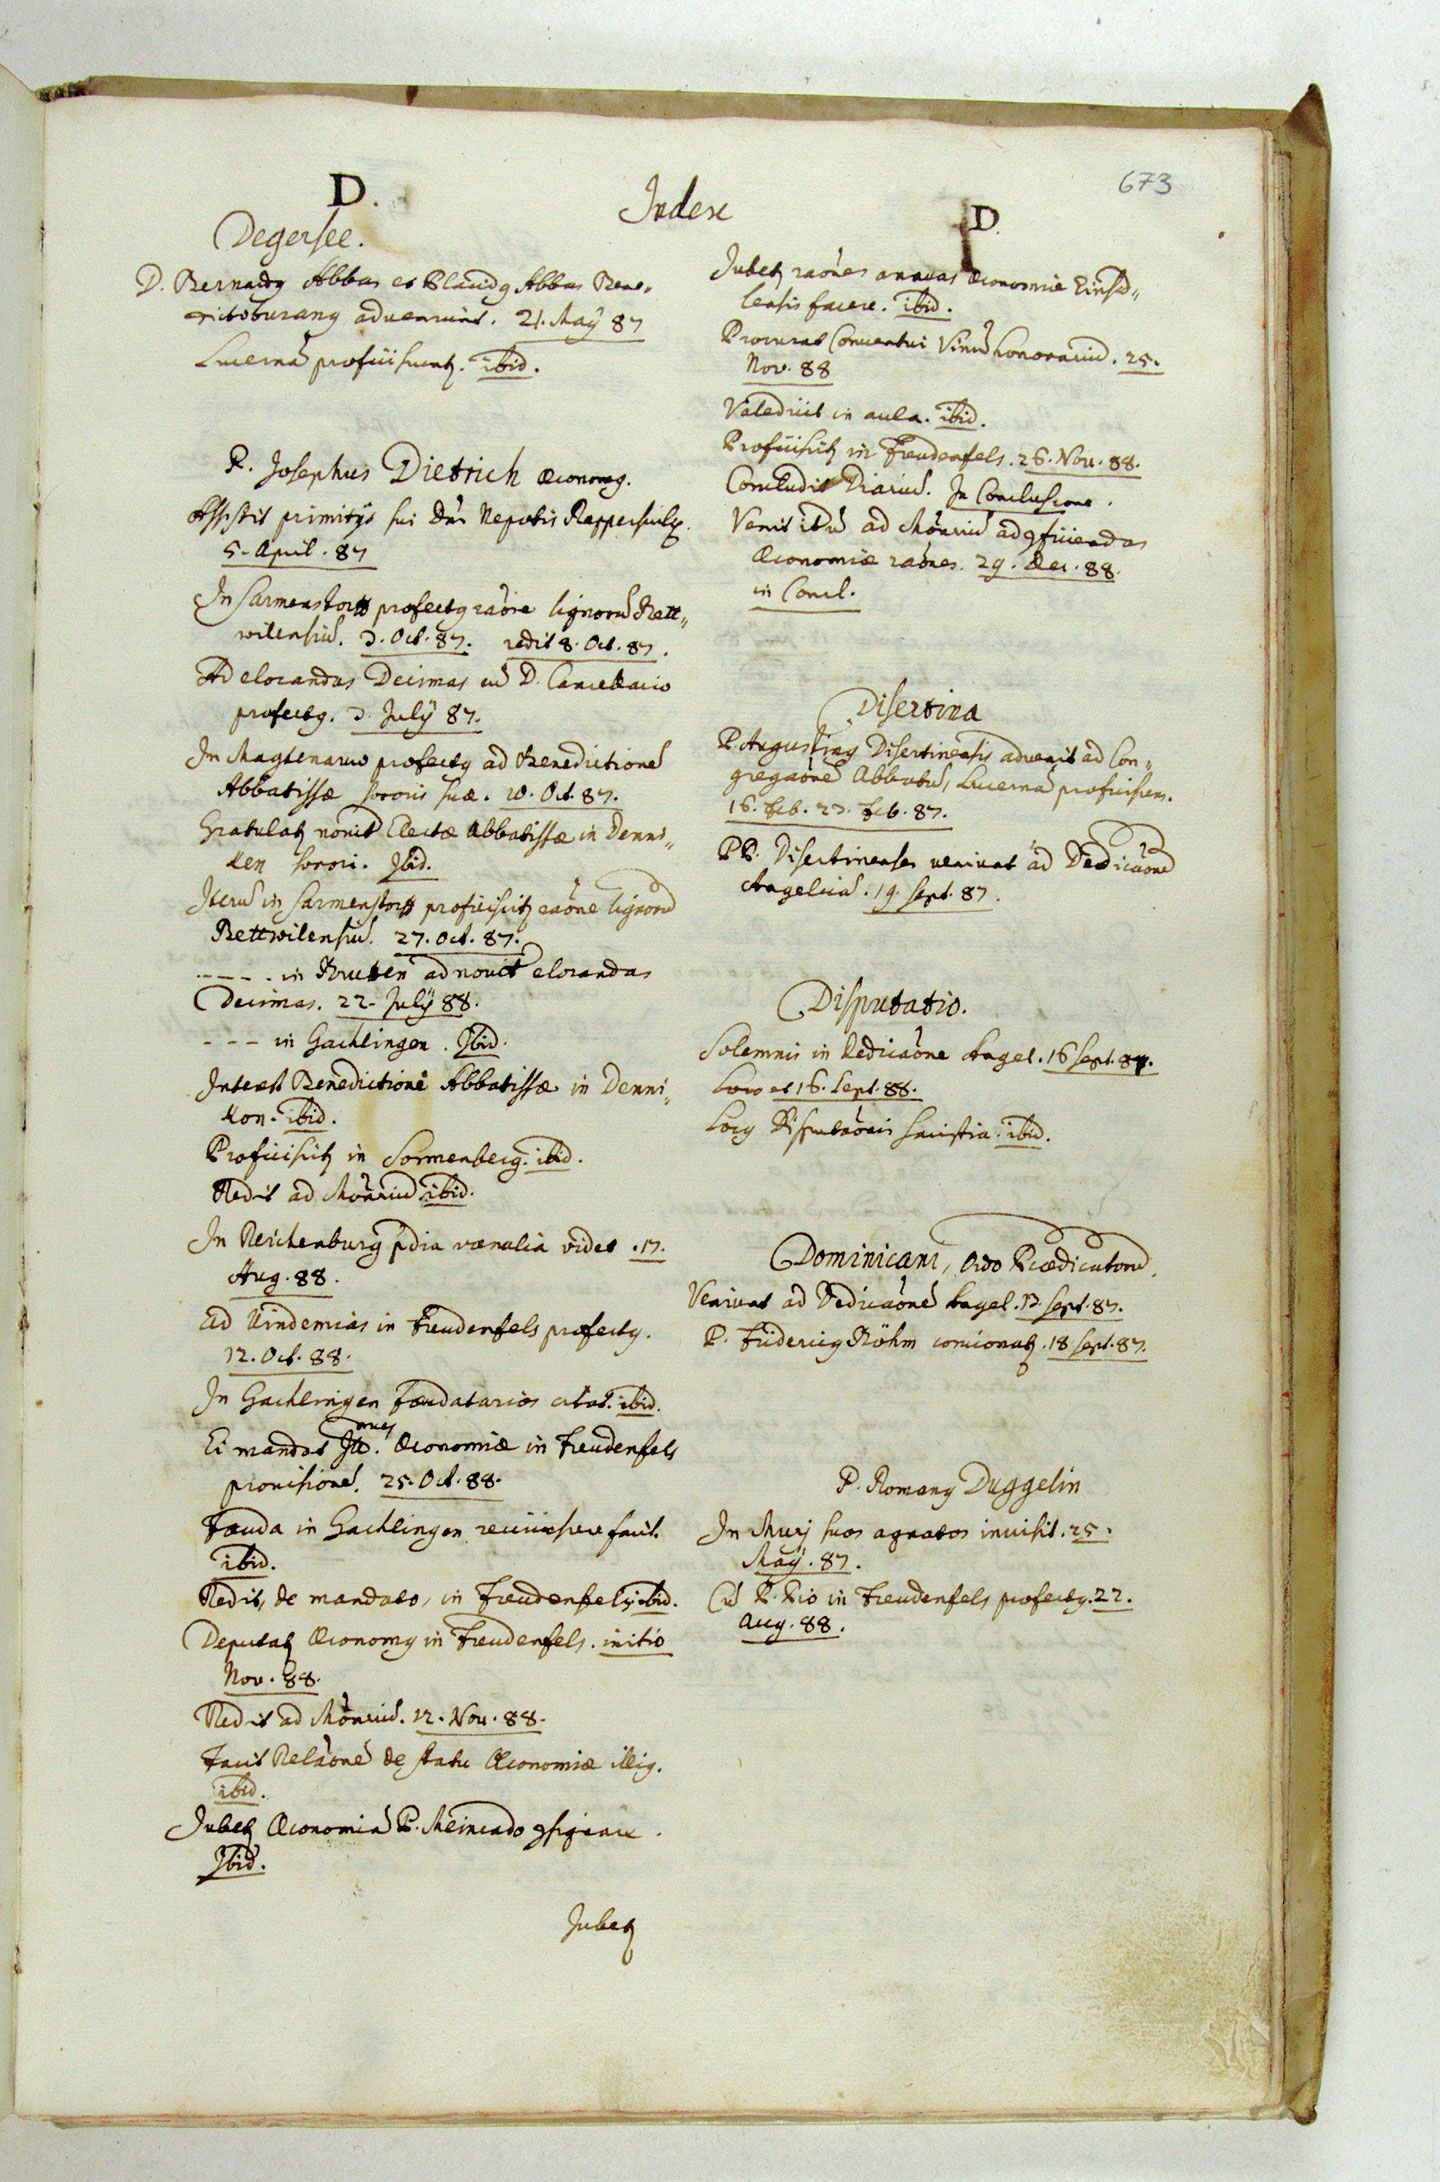 673
Index
D.
Degersee.
D. Bernardg Abbas et Placidg Abbas Bene„
dictoburang adveniunt. 21. Maÿ 87
Lucernā proficiscuntz. ibid.
P. Josephus Dietrich œconomg.
Assistit primitÿs sui Dn̄i Nepotis Rapperschwilæ.
5. April. 87
In Sarmenstorff profectg raōne lignorū Rett„
wilensiū. 3. Oct. 87. redit 8. Oct. 87.
Ad elocandas Decimas cū D. Cancellario
profectg. 3. Julÿ 87.
In Magdenaw profectg ad Benedictionē
Abbatissæ sororis suæ. 10. Oct. 87.
Gratulatz noviter Electæ Abbatissæ in Denni„
ken sorori. Ibid.
Iterū in Sarmenstorff proficiscitz raōne lignorū
Rettwilensiū. 27. Oct. 87.
---- in Brütten ad noviter elocandas
Decimas. 22. Julÿ 88.
--- in Gachlingen. Ibid.
Interest Benedictioni Abbatissæ in Denni„
kon. ibid.
Proficiscitz in Sonnenberg. ibid.
Redit ad Mōnriū ibid.
In Reichenburg p̄dia vænalia videt. 17.
Aug. 88.
Ad Vindemias in Freudenfels profectg.
12. Oct. 88.
In Gachlingen Fœudatarios citat. ibid.
Ei mandat Œconomiæ in Freudenfels
provisionē. 25. Oct. 88.
Fœuda in Gachlingen facit.
ibid.
Redit, de mandato, in Freudenfels ibid.
Deputatz Œconomg in Freudenfels. initio
Nov. 88.
Redit ad Mōnriū. 12. Nov. 88.
Facit Relaōnē de statu Œconomiæ illig.
ibid.
Jubetz Œconomiā P. Meinrado 9signare.
Ibid.
Jubetz
D.
Jubetz raōnes annuas œconomiæ Einsid„
lensis facere. ibid.
Procurat Conventui Vinū honorariū. 25.
Nov. 88
Valedicit in aula. ibid.
Proficiscitz in Freudenfels. 26. Nov. 88.
Concludit Diariū. In Conclusione.
Venit iterū ad Mōnriū ad 9ficiendas
Œconomiæ raōnes. 29. Dec. 88.
in Concl.
Disertina
P. Augusting Disertinensis advenit ad Con„
gregaōnē Abbatū, Lucernā proficiscens.
16. Feb. 23. Feb. 87.
PP. Disertinenses veniunt ad Dedicaōnē
Angelicā. 19. Sept. 87.
Disputatio.
Solemnis in Dedicaōne Angel. 16 Sept. 87.
Loco et 16. Sept. 88.
Locg Disputaōnis Sacristia. ibid.
Dominicani, Ordo Prædicatorū.
Veniunt ad Dedicaōnē Angel. 13. Sept. 87.
P. Fridericg Röhm concionatz. 18 Sept. 87.
P. Romang Duggelin
In Murj suos agnatos invisit. 25.
Maÿ. 87.
Cū P. Pio in Freudenfels profectg. 22.
Aug. 88.